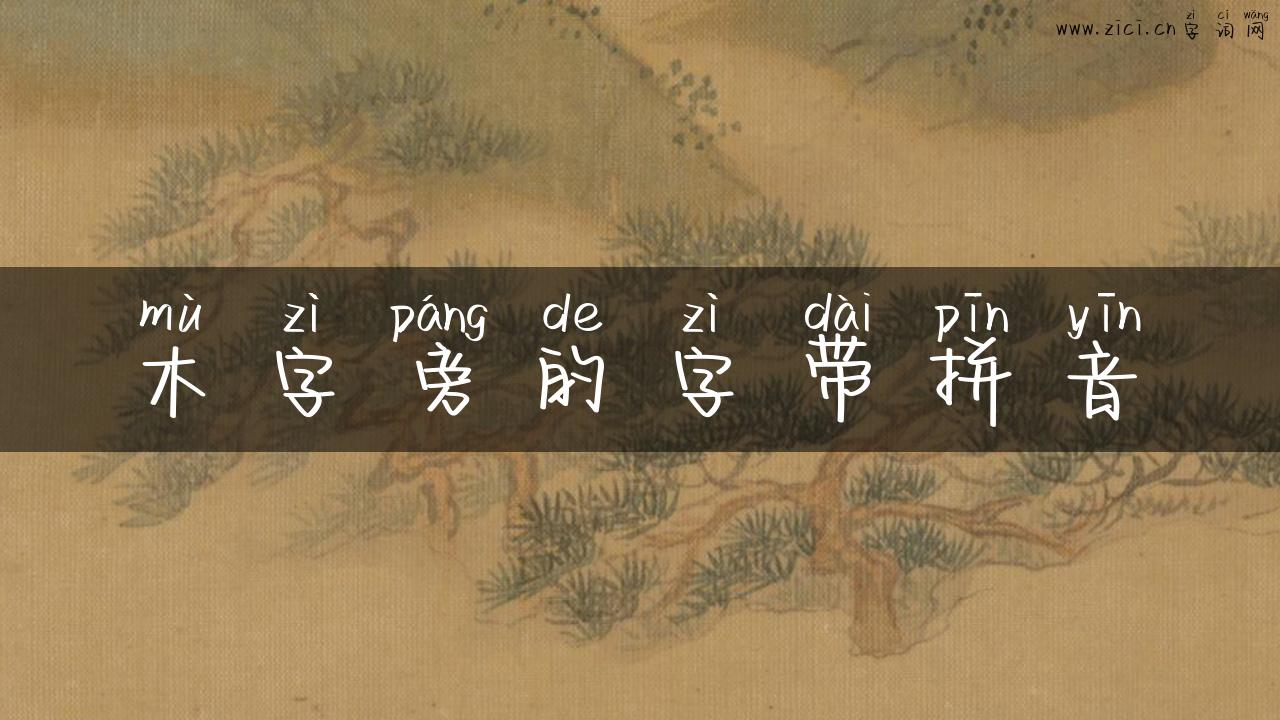 zì cí wǎng
www.zici.cn 字 词 网
mù zì páng de zì dài pīn yīn
木 字 旁 的 字 带 拼 音